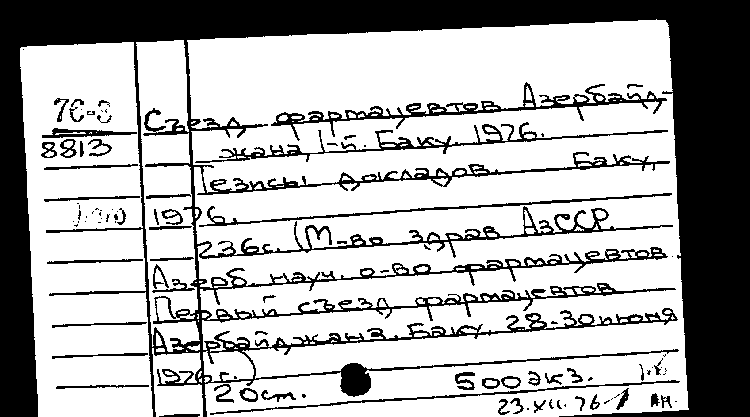 76-3
8813
Съезд фармацевтов Азербайд-
жана, 1-й. Баку. 1976.
Тезисы докладов. Баку,
1976.
236с. (М-во здрав АзССР.
Азерб. науч. о-во фармацевтов.
Первый съезд фармацевтов
Азербайджана. Баку, 28-30 июня
1976 г.)
20 см. 500 экз.
23.XII.76